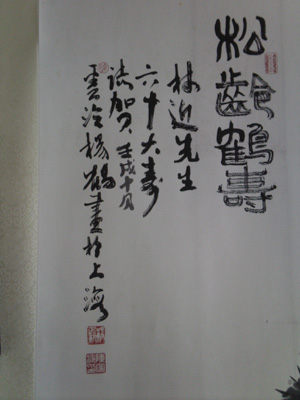 松齡鶴壽
林近先生
六十大寿
誌賀 壬戌十月
楊鶴畫於上海